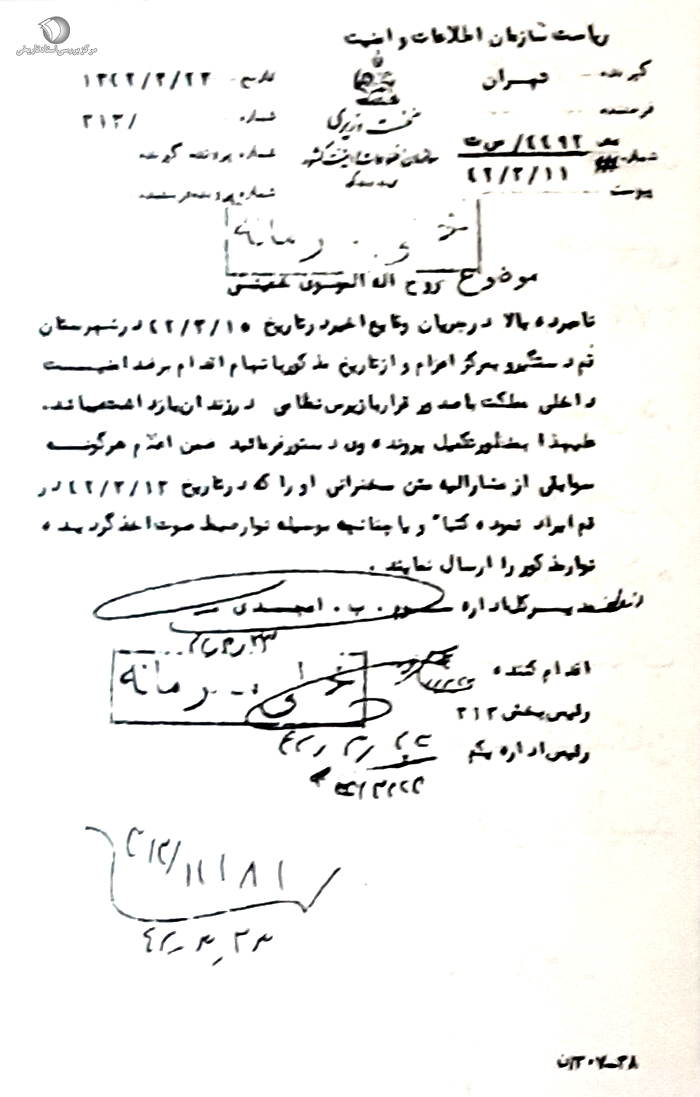 مرکز بررسی اسناد تاریخی
ریاست سازمان اطلاعات و امنیت
گیرنده تهران تاریخ ۱۳۴۲/۳/۲۳
فرستنده نخست وزیری شماره ۳۱۲/
شماره ۴۲/۳/۱۱ سازمان اطلاعات و امنیت کشور شماره پرونده گیرنده
پیوست شماره پرونده فرستنده
خیلی محرمانه
موضوع روح اله الموسوی خمینی
نامبرده بالا در جریان وقایع اخیر در تاریخ ۴۲/۳/۱۵ در شهرستان
قم دستگیر و بمرکز اعزام و از تاریخ مذکور باتهام اقدام برضد امنیت
داخلی مملکت با صدور قرار بازپرس نظامی در زندان بازداشت میباشد.
علیهذا بمنظور تکمیل پرونده وی دستور فرمائید ضمن اعلام هرگونه
سوابقی از مشارالیه متن سخنرانی او را که در تاریخ ۴۲/۳/۱۳ در
قم ایراد نموده کتبا" و یا چنانچه بوسیله نوار ضبط صوت اخذ گردیده
نوار مذکور را ارسال نمایند.
مدیر کل اداره سوم. ب. امجدی
اقدام کننده
خیلی محرمانه
رئیس بخش ۳۱۲
رئیس اداره یکم
۳۱۲/۱۱۱۸۱
۴۲-۳-۲۳